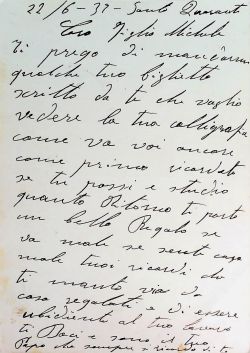 22/6-37 - Santi Quaranta
Caro Figlio Michele
Ti prego di mandarmi
qualche tuo biglietto
scritto da te che voglio
vedere la tua calligrafia
come va voi ancore
come primo ricordati
se tu passi e studio
quanto Ritorno ti porto
un bello Regalo se
va male se sento cosa
male tuoi ricordi che
ti manto via da
casa regolati e di essere
ubidienti al tuo
ti Baci e sono il tuo
Papà che sempre ti